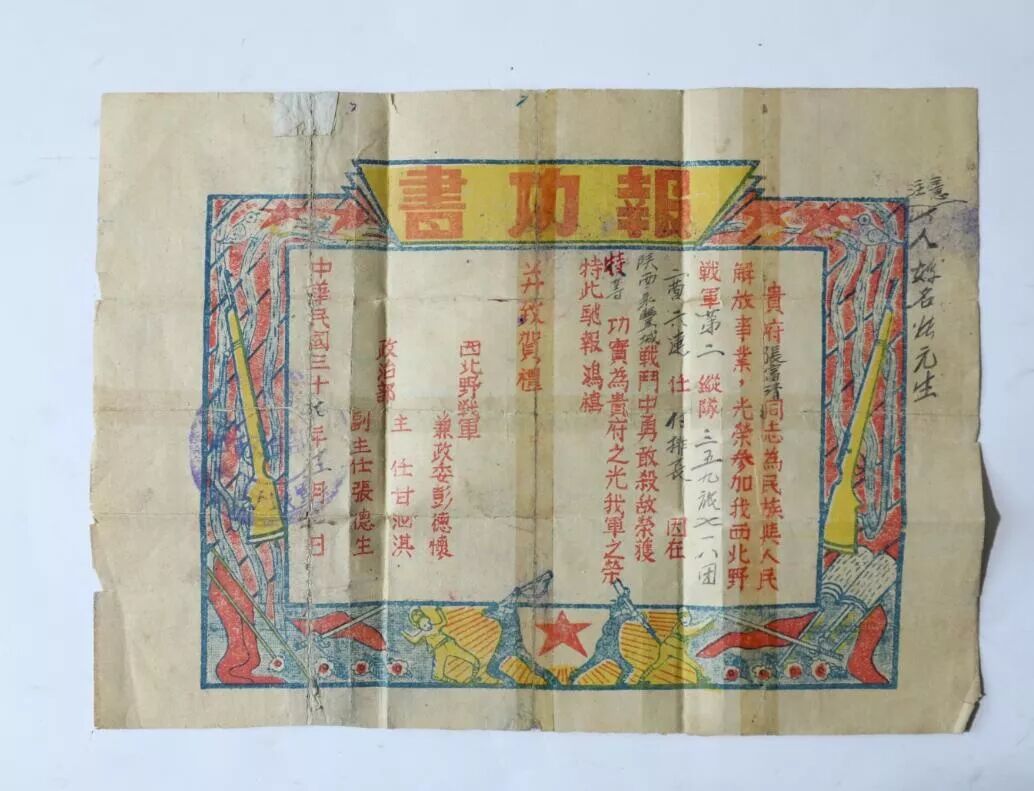 報功書
貴府張富清同志為民族與人民
解放事業，光榮參加我西北野
戰軍第二縱隊三五九旅七一八团
二营六連 任 付排長 因在
陕西永豐城戰鬥中勇敢殺敌榮獲
特等 功實為貴府之光我軍之榮
特此馳報鴻禧
并致賀禮
西北野戰軍
兼政委彭德懷
政治部
主 任甘泗淇
副主任張德生
中華民國三十七年 月 日
注意
人姓名 元生